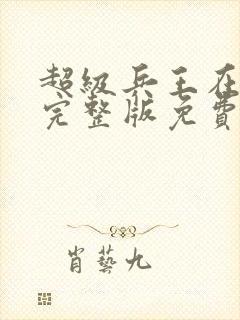 超级兵王在
完整版免費
肖藝九